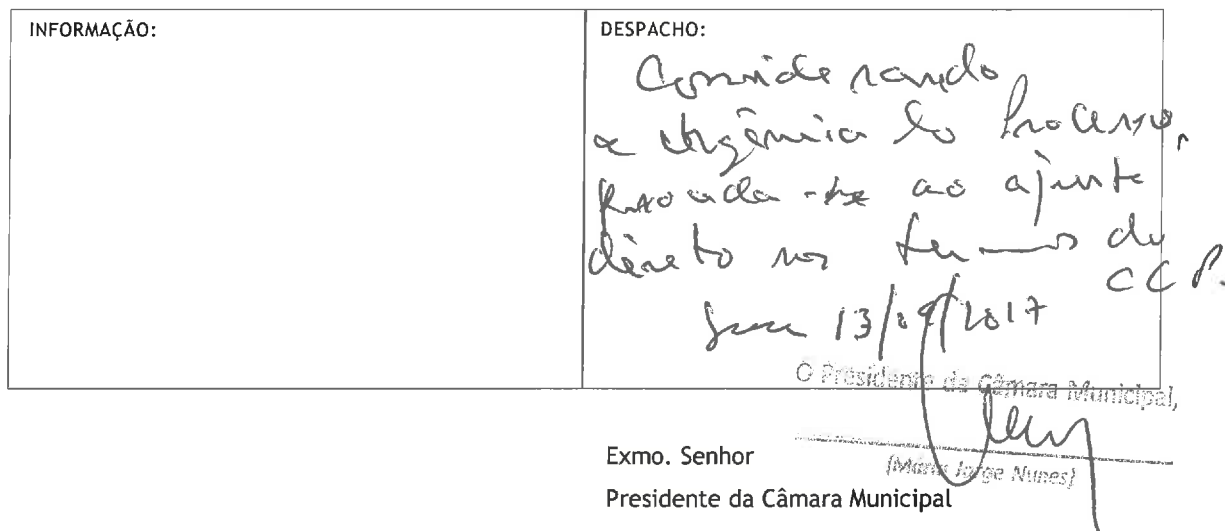 INFORMAÇÃO:
DESPACHO:
Considerando
a Urgência do Processo,
proceda-se ao ajuste
direto nos termos do
CCP.
13/09/2017
O Presidente da Câmara Municipal,
(Mário Jorge Nunes)
Exmo. Senhor
Presidente da Câmara Municipal